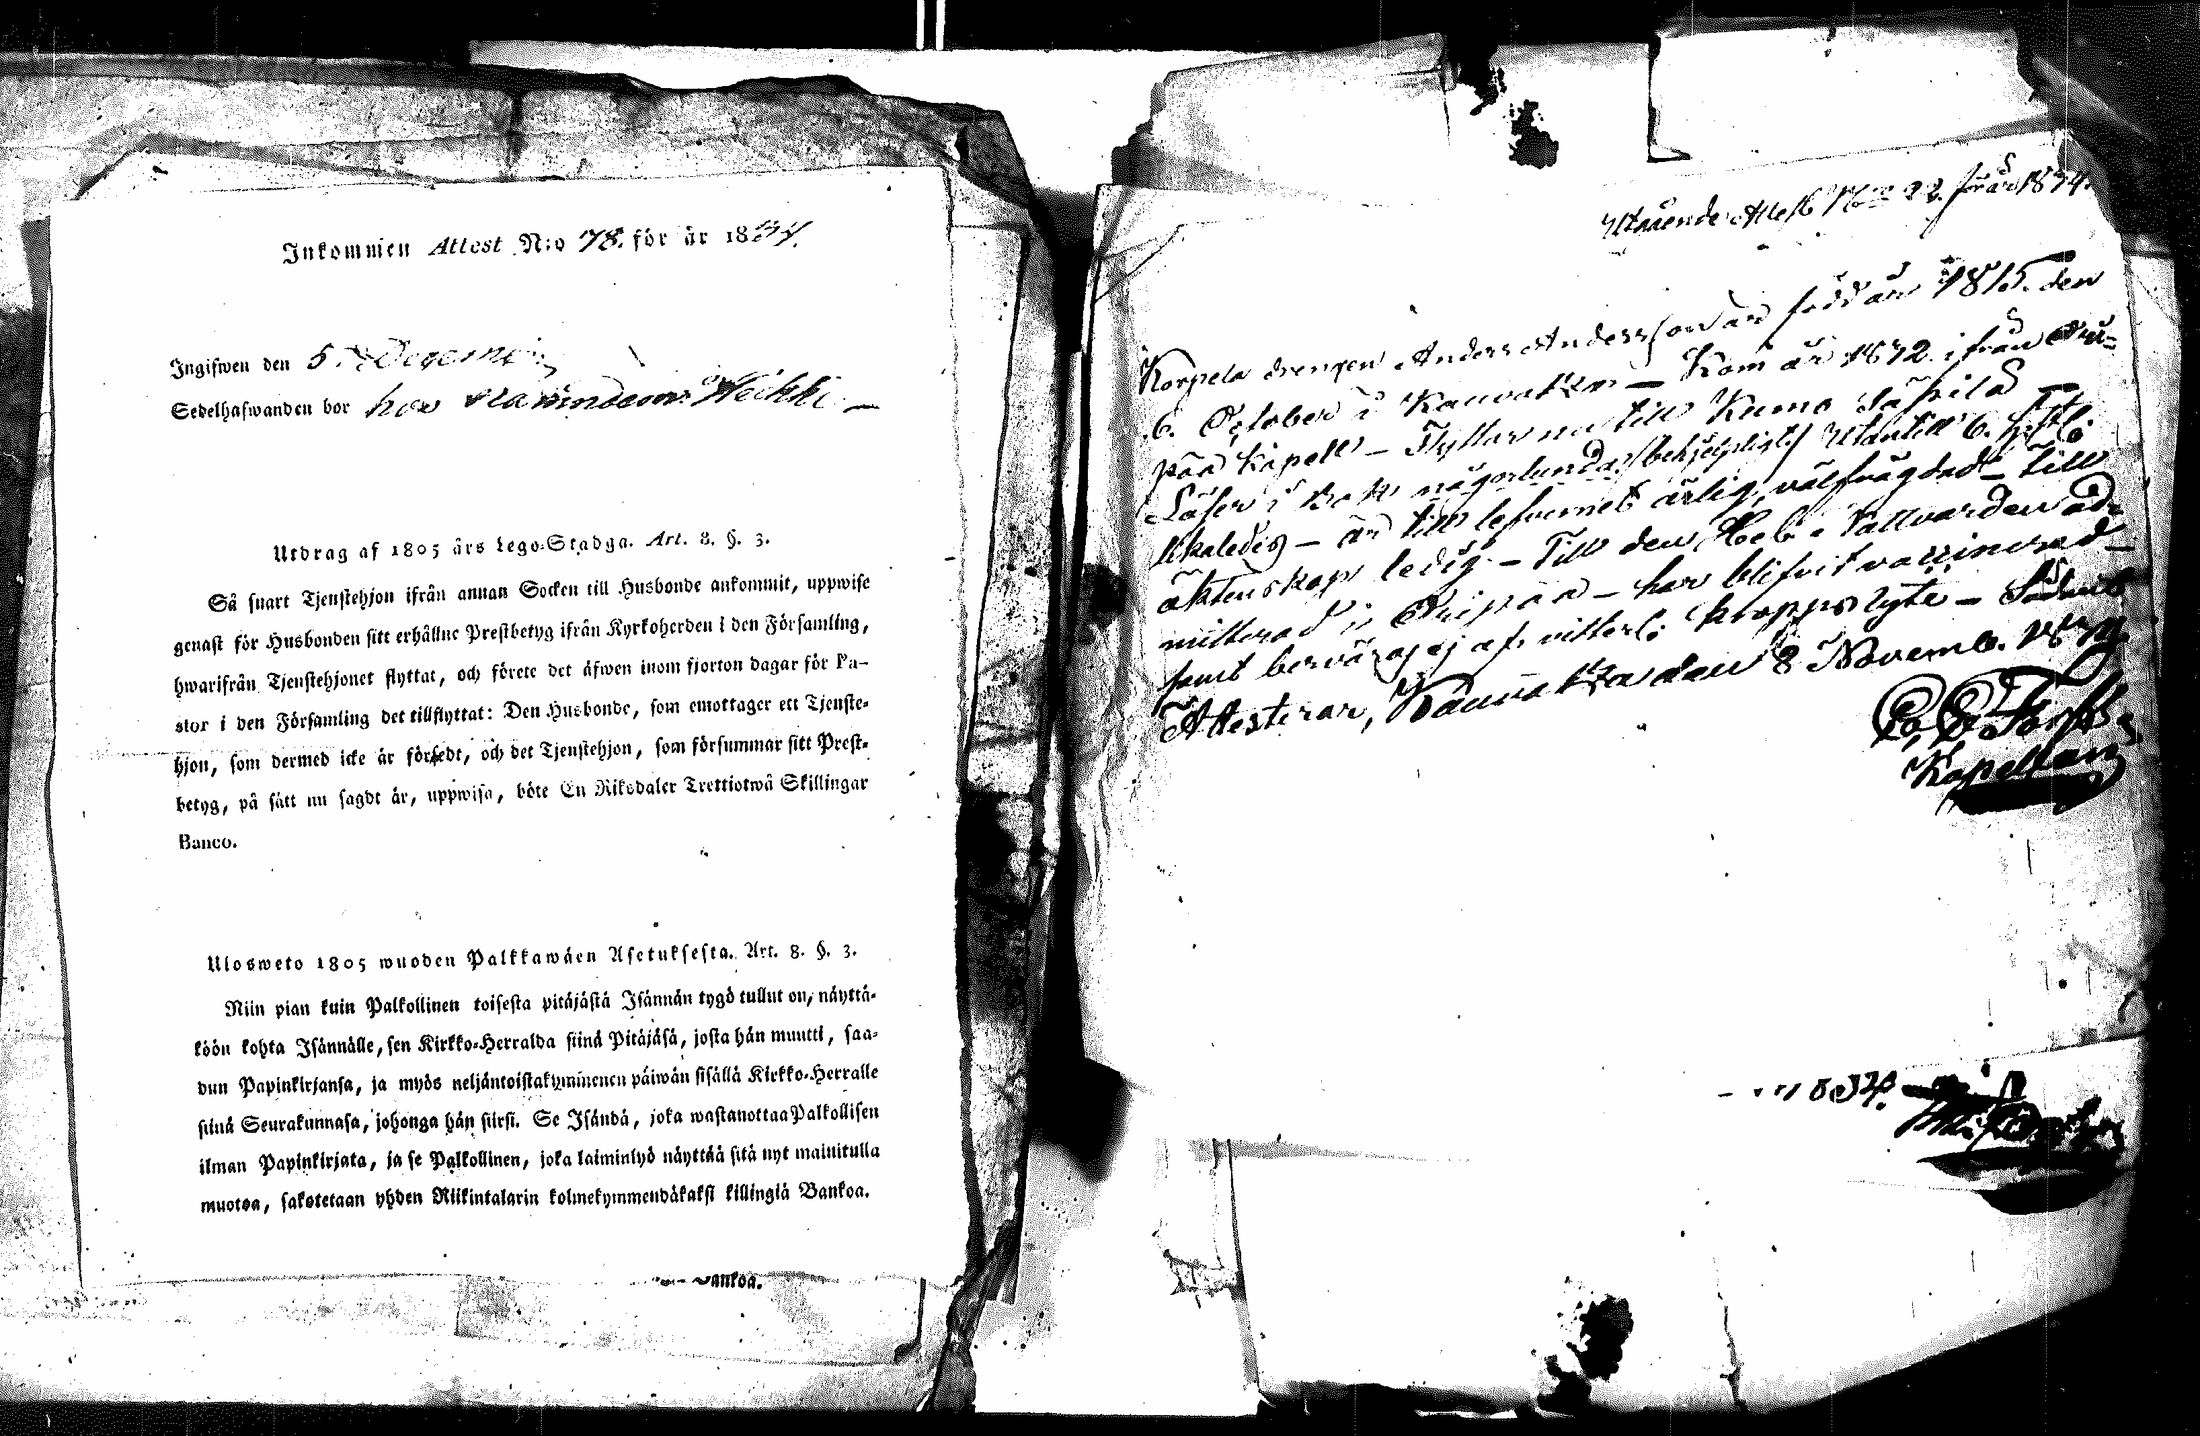 Inkommen Attest N:o 78. för år 1834.
Ingifwen den 5. December
Sedelhafwanden bor hos Heikki —
Utdrag af 1805 års Lego-Stadga. Art. 8. §. 3.
Så snart Tjenstehjon ifrån annan Socken till Husbonde ankommit, uppwise
genast för Husbonden sitt erhållne Prestbetyg ifrån Kyrkoherden i den Församling,
hwarifrån Tjenstehjonet flyttat, och förete det äfwen inom fjorton dagar för Pa-
stor i den Församling det tillflyttat: Den Husbonde, som emottager ett Tjenste-
hjon, som dermed icke är försedt, och det Tjenstehjon, som försummar sitt Prest-
betyg, på sätt nu sagdt är, uppwisa, böte En Riksdaler Trettiotwå Skillingar
Banco.
Ulosweto 1805 wuoden Palkkawäen Asetuksesta. Art. 8. §. 3.
Niin pian kuin Palkollinen toisesta pitäjästä Isännän tygö tullut on, näyttä-
köön kohta Isännälle, sen Kirkko-Herralda siinä Pitäjäsä, josta hän muutti, saa-
dun Papinkirjansa, ja myös neljäntoistakymmenen päiwän sisällä Kirkko-Herralle
siinä Seurakunnasa, johonga hän siirsi. Se Isändä, joka wastanottaa Palkollisen
ilman Papinkirjata, ja se Palkollinen, joka laiminlyö näyttää sitä nyt mainitulla
muotoa, sakotetaan yhden Riikintalarin kolmekymmendäkaksi killingiä Bankoa.
Bankoa.
Utgående Attest N:o 22. för år 1834.
Korpela drengen Anders Andersson är född år 1815. den
6. October i Kauvatza — Kom år 1832 ifrån Pun-
pää Kapell — Flyttar nu till Kumo
Läser i Bok någorlunda (behjelpligt) Utantill 6. H:st:
Skaledes — är till lefvernet ärlig, välfrägdad — Till
äktenskap ledig — Till den Hel. Nattvarden ad-
mitterad i — har blifvit vaccinerad —
samt besväras ej af vitterl: kroppslyte — Sådant
Attesterar, Kauvatza den 8 Novemb. 1834.
Kapellan
1834.